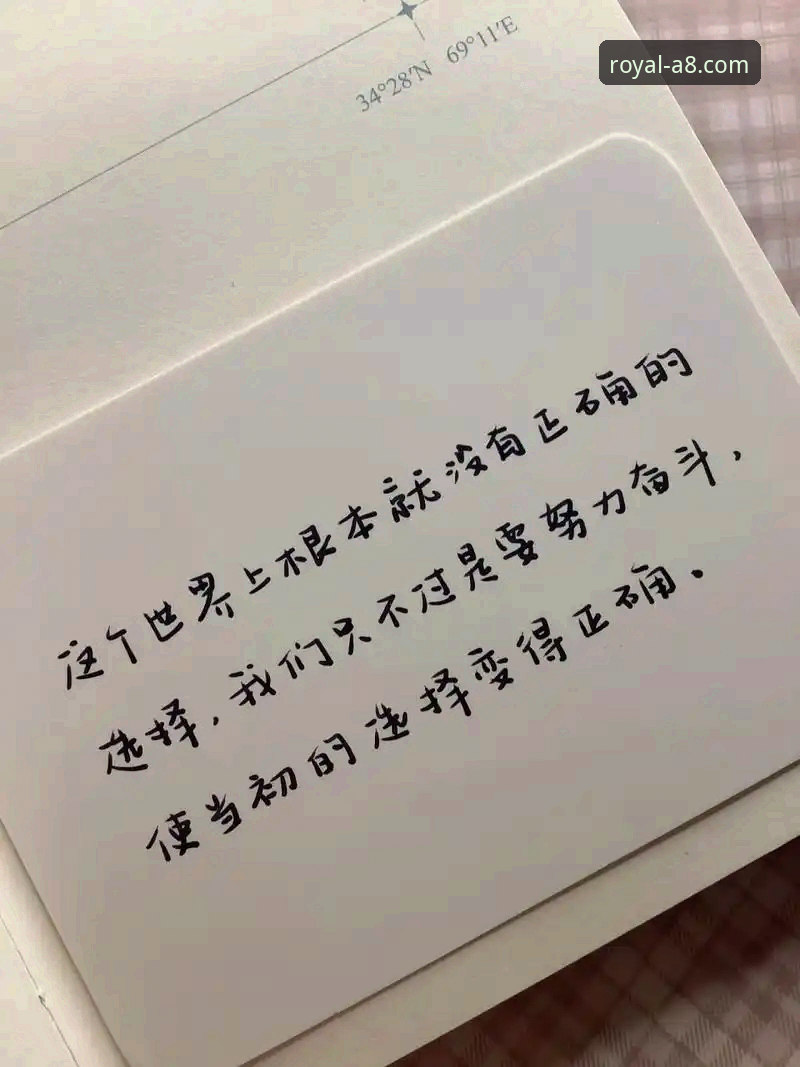 royal-a8.com
34°28'N 69°11'E
这个世界上根本就没有正确的
选择，我们只不过是要努力奋斗，
使当初的选择变得正确。